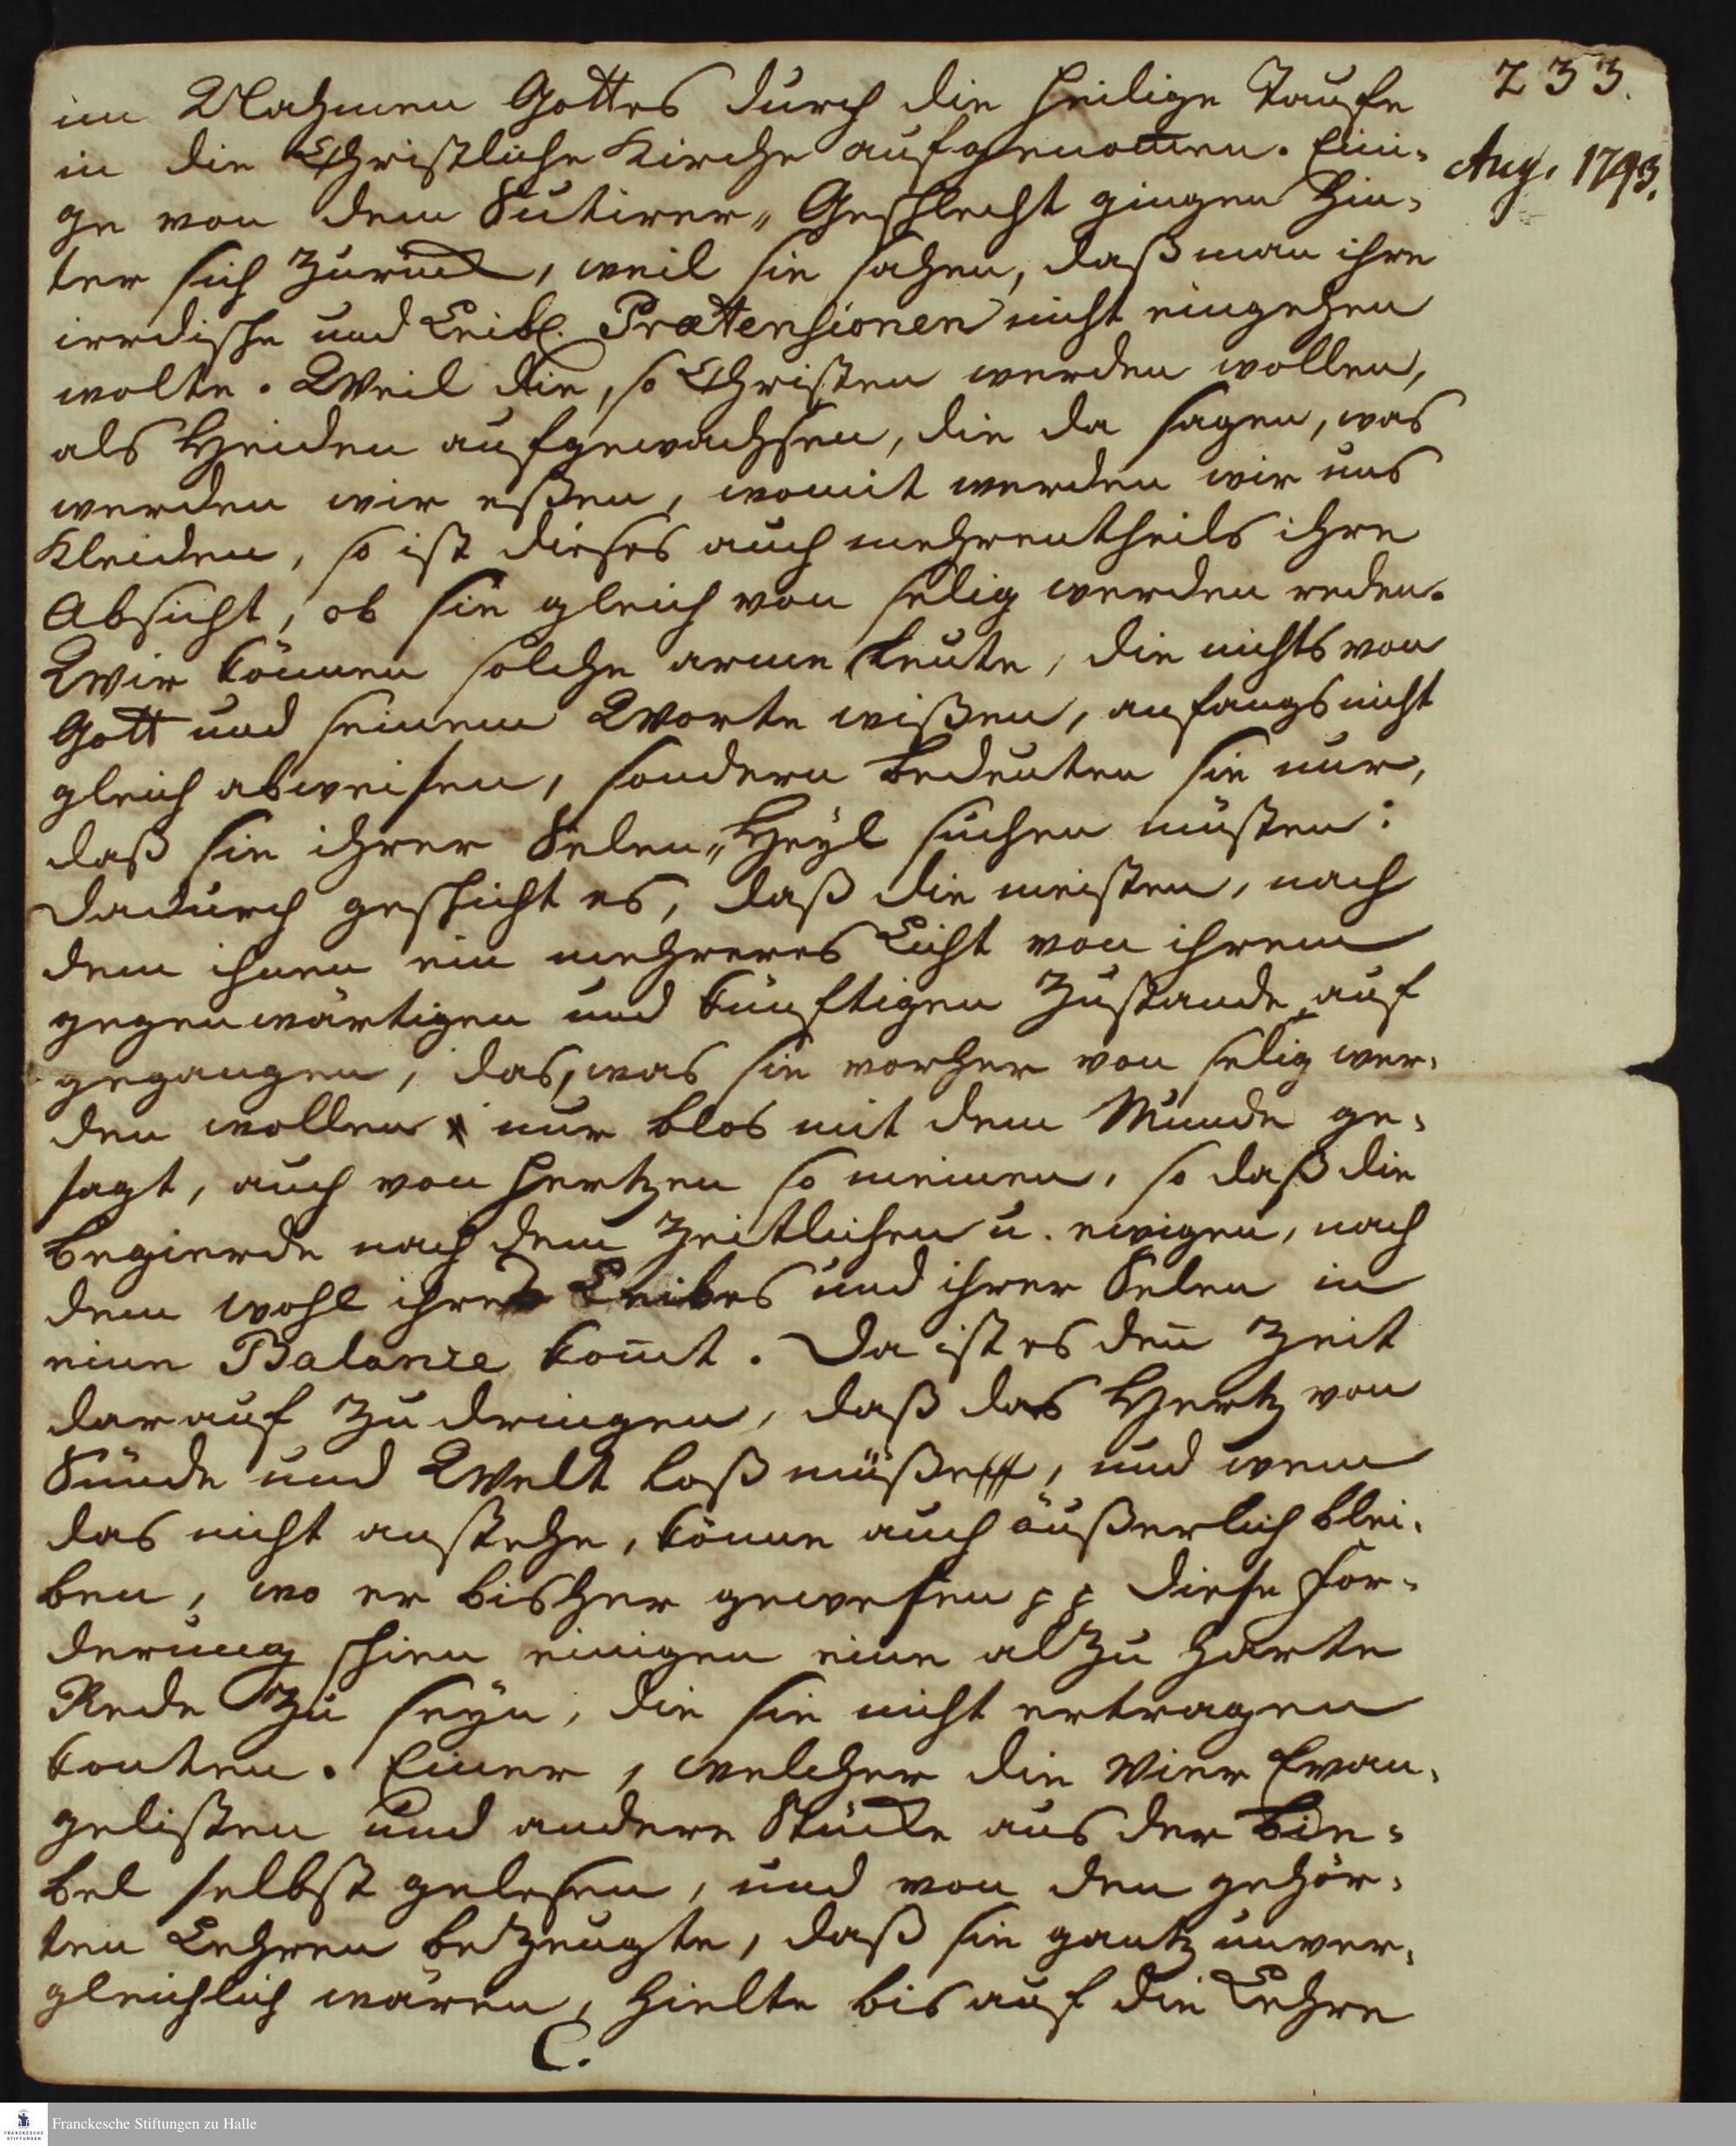 233.
Aug. 1793.
im Nahmen Gottes durch die heilige Taufe
in die Christliche Kirche aufgenom̄en. Eini-
ge von dem Sutirer„Geschlecht gingen hin-
ter sich zurück, weil sie sahen, daß man ihre
irrdische und Leibl. Prætensionen nicht eingehen
wolte. Weil die, so Christen werden wollen,
als Heiden aufgewachsen, die da sagen, was
werden wir eßen, womit werden wir uns
kleiden, so ist dieses auch mehrentheils ihre
Absicht, ob sie gleich von selig werden reden.
Wir können solche arme Leute, die nichts von
Gott und seinem Worte wißen, anfangs nicht
gleich abweisen, sondern bedeuten sie nur,
daß sie ihrer Selen„Heyl suchen müsten:
dadurch geschicht es, daß die meisten, nach
dem ihnen ein mehreres Licht von ihrem
gegenwärtigen und künftigen Zustande auf
gegangen, das, was sie vorher von selig wer-
den wollen nur blos mit dem Munde ge-
sagt, auch von Hertzen so meinen, so daß die
Begierde nach dem Zeitlichen u. ewigen, nach
dem wohl ihres Leibes und ihrer Selen in
eine Balance kom̄t. Da ist es den̄ Zeit
darauf zu dringen, daß das Hertz von
Sünde und Welt loß müße, und wem
das nicht anstehe, könne auch äußerlich blei-
ben, wo er bisher gewesen pp diese For-
derung schien einigen eine alzu harte
Rede zu seyn, die sie nicht ertragen
konten. Einer, welcher die Vier Evan-
gelisten und andere Stücke aus der Bie-
bel selbst gelesen, und von den gehör-
ten Lehren bezeugte, daß sie gantz unver-
gleichlich wären, hielte bis auf die Lehre
C.
Franckesche Stiftungen zu Halle
FRANCKESCHE
STIFTUNGEN